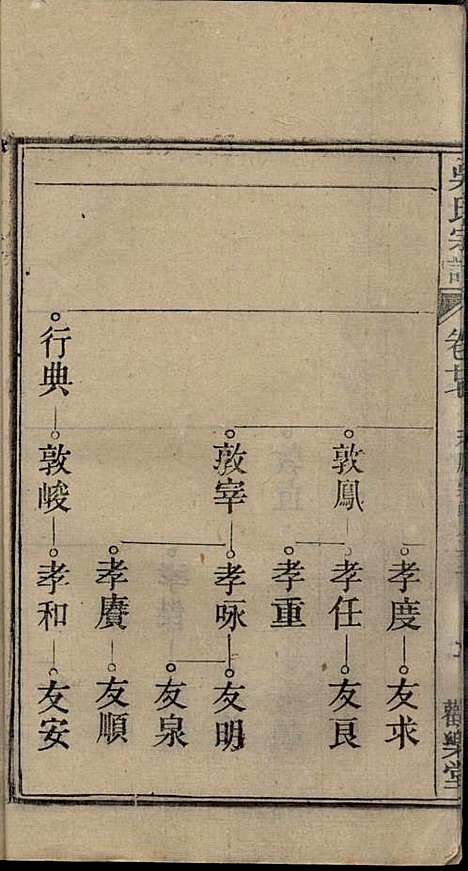 吳氏宗譜
卷廿
觀樂堂
孝度 友求
敦鳳 孝任 友良
孝重
敦宰 孝咏 友明
友泉
孝賡 友順
行典 敦峻 孝和 友安